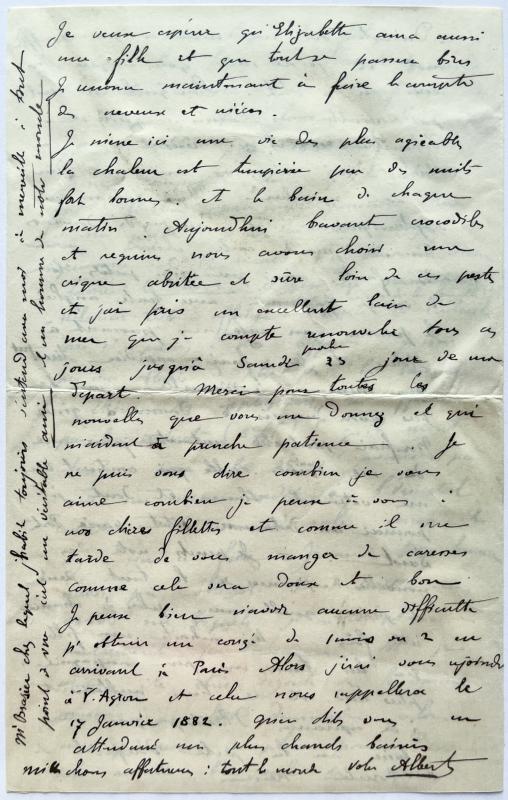 Je veux espérer qu'Elizabette aura aussi
une fille et que tout se passera bien
Je renonce maintenant à faire le compte
des neveux et nièces.
Je mène ici une vie des plus agréables
la chaleur est tempérée par des nuits
fort bonnes. et le bain de chaque
matin Aujourdhui bravant crocodiles
et requins nous avons choisi une
crique abritée et sûre loin de ces pestes
et j'ai pris un excellent bain de
mer que je compte renouveler tous ces
jours jusqu'à Samedi prochain 23 jour de mon
départ. Merci pour toutes les
nouvelles que vous me donnez et qui
m'aident à prendre patience. Je
ne puis vous dire combien je vous
aime combien je pense à vous à
nos chères fillettes et comme il me
tarde de vous manger de caresses
comme cela sera doux et bon
Je pense bien n'avoir aucune difficulté
pr obtenir un congé de 1 mois ou 2 en
arrivant à Paris Alors j'irai vous rejoindre
à V. Agron et cela nous rappellera le
17 Janvier 1882. qu'en dites vous. en
attendant mes plus chauds baisers
mille choses affectueuses à tout le monde votre Albert
Mr Brasier chez lequel j'habite toujours s'entend avec moi à merveille à tout
point de vue c'est un véritable ami et un homme de notre monde